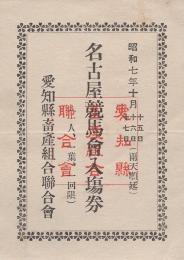 昭和七年十月十五日十六日十七日(雨天順延)
名古屋競馬會入場券
一人一葉一回限
愛知縣畜產組合聯合會
愛知縣
聯合會